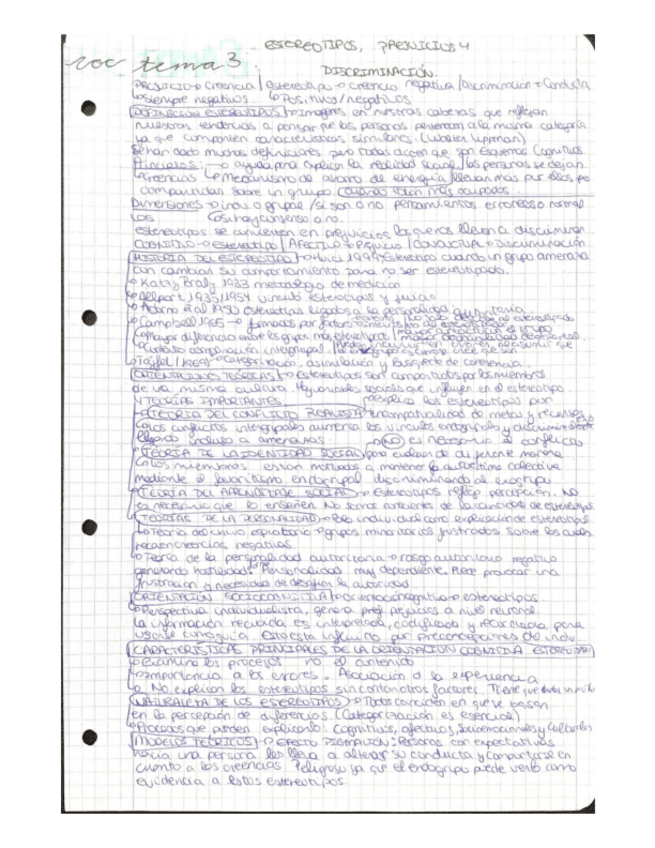 ESTEREOTIPOS, PREJUICIOS Y
voc tema 3
DISCRIMINACIÓN.
PREJUICIO → creencia negativa / Discriminación → Conducta
↳ siempre negativos ↳ Positivos/negativos
DEFINICIÓN ESTEREOTIPOS → imagenes en nuestras cabezas que reflejan
nuestras tendencias a pensar que las personas pertenecen a la misma categoria
ya que comparten características similares. (Walter Lippman)
Se han dado muchas definiciones, pero todas que son esquemas cognitivos
→ ayuda para explicar la realidad social / las personas se dejan
↳ Mecanismo de ahorro de energía / llevar más por ellos
compartidas sobre un grupo. cuando están más ocupados.
Dimensiones → indiv o grupal / si son o no pensamientos erroneos o normal
↳ si hay consenso o no.
estereotipos se convierten en prejuicios los que nos llevan a discriminar
COGNITIVO → estereotipo / AFECTIVO → Prejuicio / CONDUCTUAL → Discriminación
HISTORIA DEL ESTEREOTIPO → estereotipo cuando un grupo amenaza
con cambiar su comportamiento para no ser estereotipado.
→ Katz y Braly 1933 metodologia de medicion
→ Allport 1935/1954 vinculó estereotipos y
→ Adorno et al 1950 estereotipos ligados a la personalidad autoritaria
→ Campbell 1965 → formados por
↳ mayor diferencia entre los grupos más estereotipos
↳ contraste comparación intergrupal.
→ Tajfel (1969) → Categorización, asimilación y busqueda de coherencia.
ORIENTACIONES TEÓRICAS → estereotipos son compartidos por los miembros
de una misma cultura. Hay variables sociales que influyen en el estereotipo.
4 TEORIAS IMPORTANTES
→ TEORÍA DEL CONFLICTO REALISTA → explica los estereotipos por incompatibilidad de metas y recursos
↳ los conflictos intergrupales aumenta los vinculos endogrupales y
llegando incluso a amenazas. → NO es necesario el conflicto
→ TEORÍA DE LA IDENTIDAD SOCIAL para evaluar de diferente manera
↳ los miembros están motivados a mantener la autoestima colectiva
mediante el favoritismo endogrupal discriminando al exogrupo
→ TEORÍA DEL APRENDIZAJE SOCIAL → estereotipos reflejo percepción. No
es necesario que lo enseñen. No somos
→ TEORÍAS DE LA PERSONALIDAD → individual como explicación de estereotipos
↳ Teoría del chivo expiatorio → grupos minoritarios frustrados sobre los cuales
recaen creencias negativas.
↳ Teoria de la personalidad autoritaria → rasgo autoritario negativo
generando hostilidad. Personalidad muy dependiente. Puede provocar una
frustración y necesidad de desafiar la autoridad
ORIENTACIÓN SOCIOCOGNITIVA → estereotipos
→ Perspectiva individualista, genera prejuicios a nivel personal.
La información recuerda es interpretada, codificada y recordada para
usarse como guía. Esto está influido por preconcepciones de indiv
CARACTERÍSTICAS PRINCIPALES DE LA ORIENTACIÓN COGNITIVA
→ examina los procesos no el contenido
→ Importancia a los errores. Asociación a la experiencia
→ No explican los estereotipos sin contar otros factores.
NATURALEZA DE LOS ESTEREOTIPOS → Todos coinciden en que se basan
en la percepción de diferencias. (Categorización es esencial)
→ Procesos que pueden explicarlo: Cognitivos, afectivos, Socioemocionales y Culturales
MODELOS TEÓRICOS → EFECTO PIGMALION: Personas con expectativas
hacia una persona las lleva a alterar su conducta y comportarse en
cuanto a las creencias. Peligroso ya que el endogrupo puede verlo como
evidencia a estos estereotipos